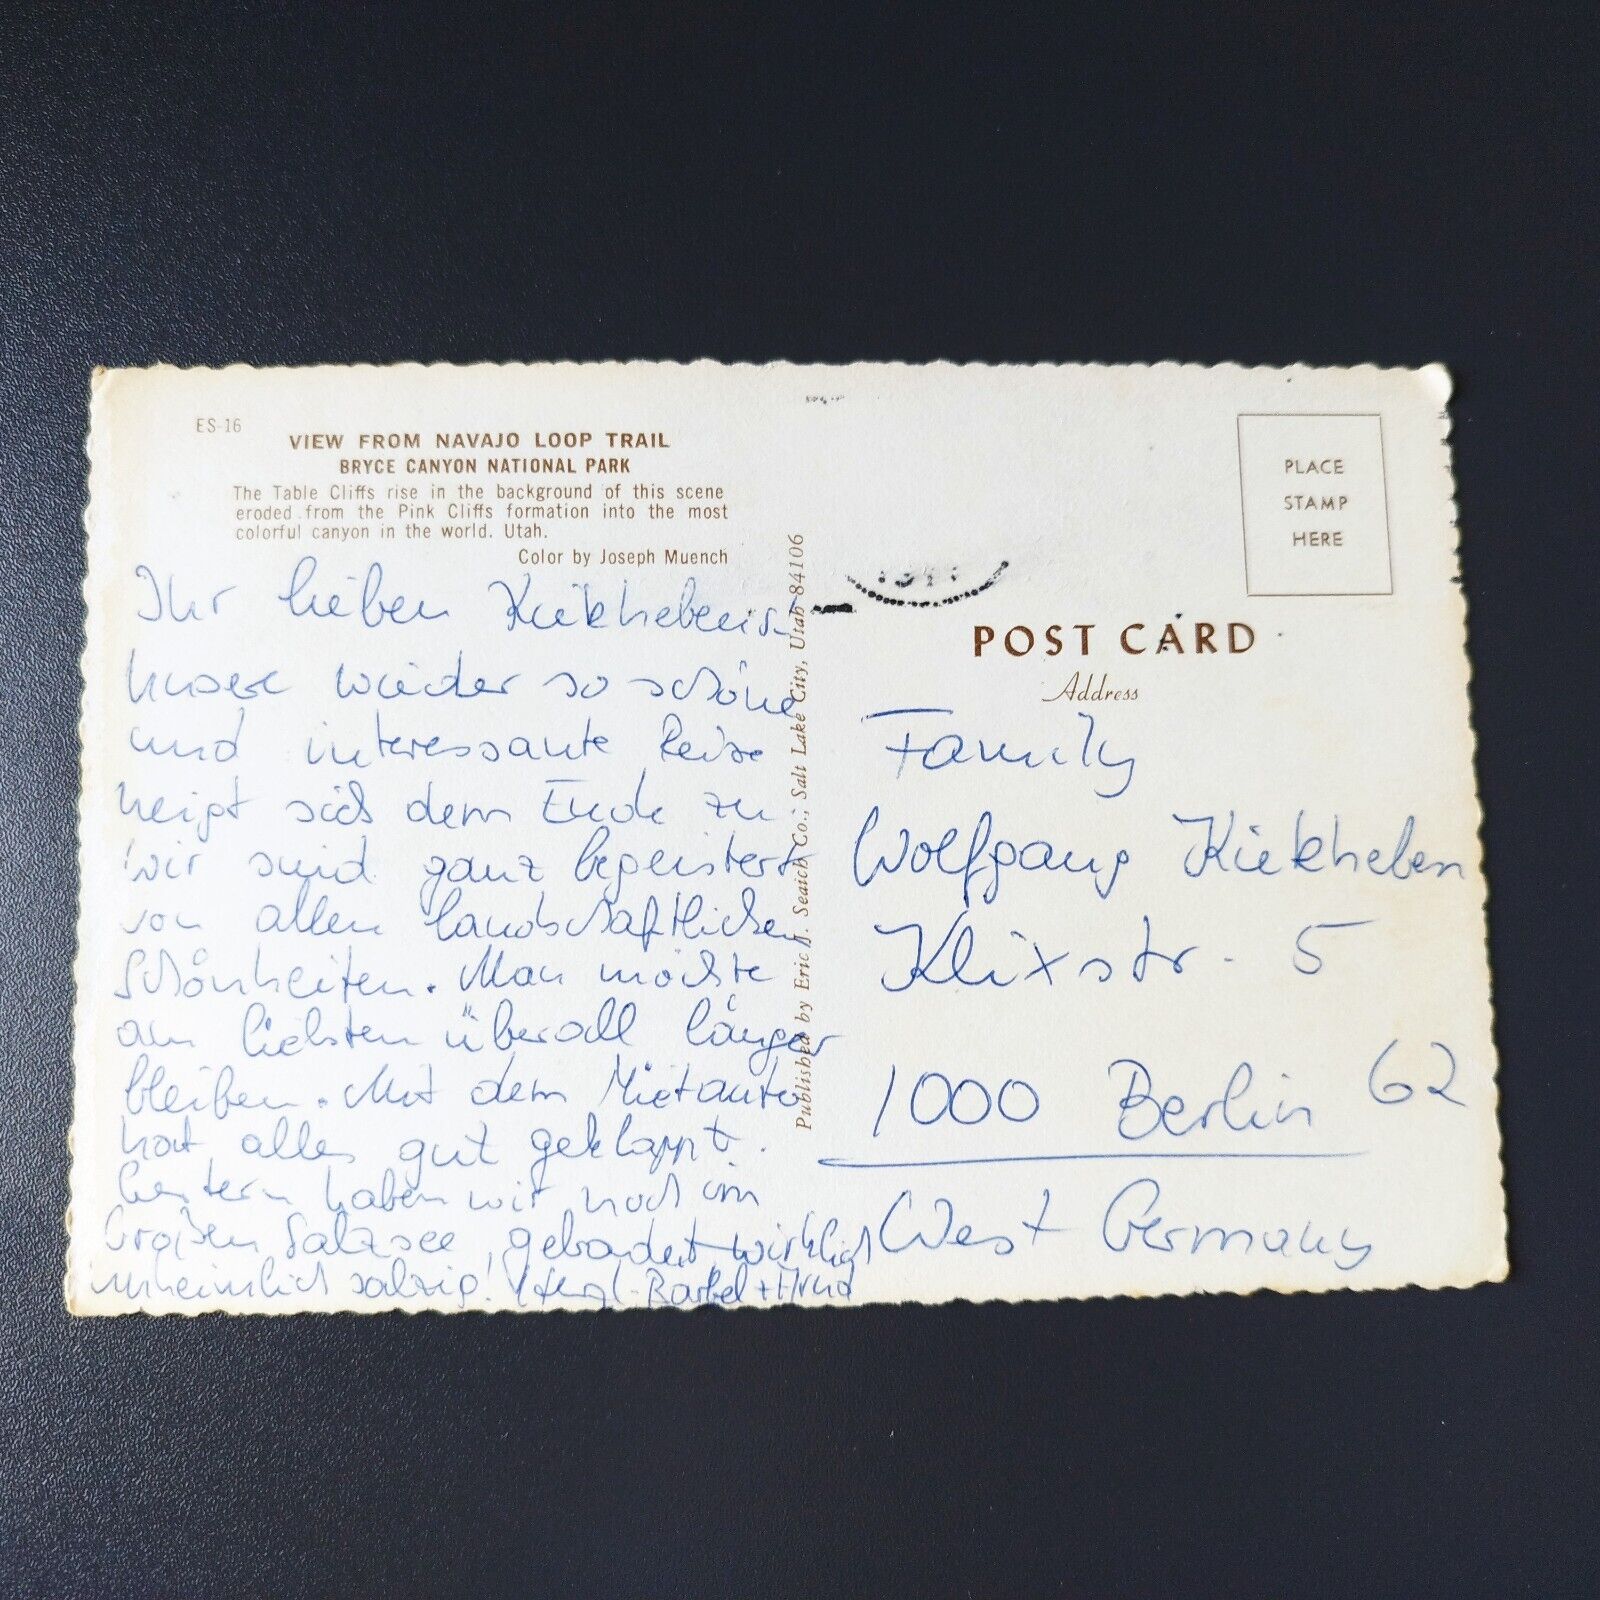 ES-16
VIEW FROM NAVAJO LOOP TRAIL
BRYCE CANYON NATIONAL PARK
The Table Cliffs rise in the background of this scene
eroded from the Pink Cliffs formation into the most
colorful canyon in the world. Utah.
Color by Joseph Muench
Ihr lieben
Unsere wieder so schöne
und interessante Reise
neigt sich dem Ende zu
wir sind ganz begeistert
von allen landschaftlichen
Schönheiten. Man möchte
am liebsten überall länger
bleiben. Mit dem Mietauto
hat alles gut geklappt.
Gestern haben wir noch im
Großen Salzsee gebadet wirklich
unheimlich salzig! Bärbel + Arnd
Published by Eric J. Seaich Co., Salt Lake City, Utah 84106
PLACE
STAMP
HERE
POST CARD
Address
Family
Wolfgang Kiekheben
Klixstr. 5
1000 Berlin 62
West Germany